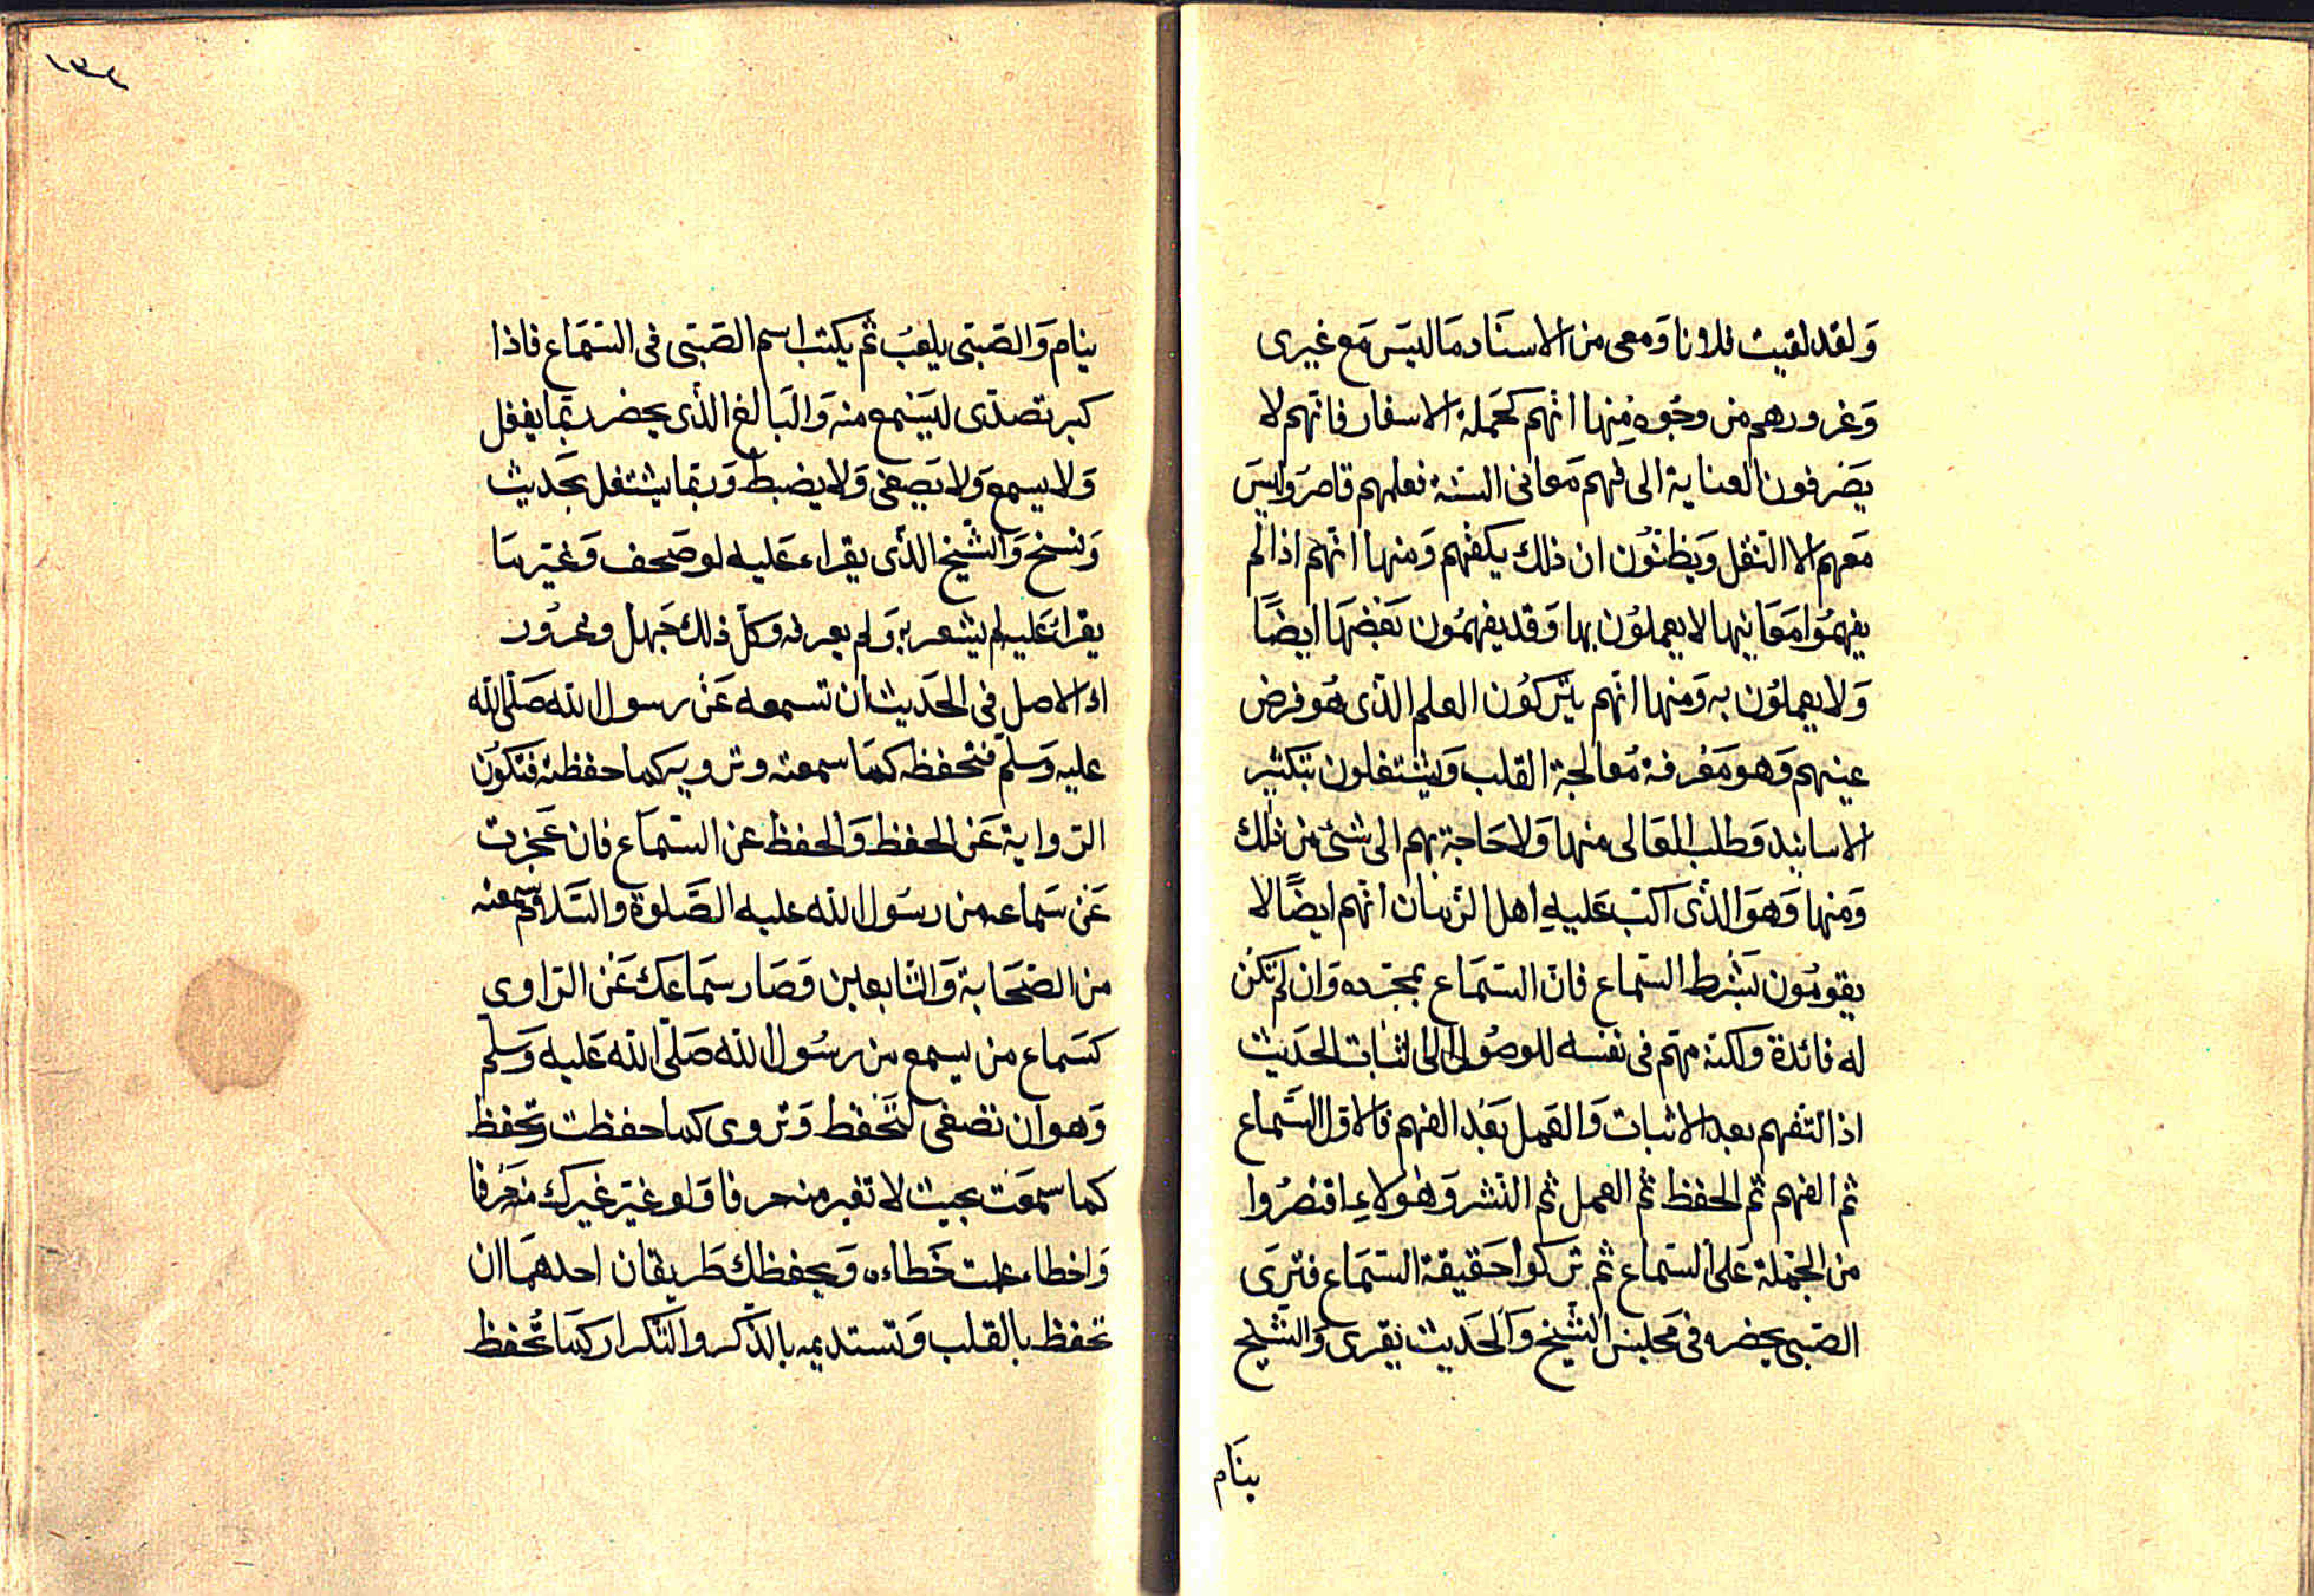 ولقد لقيت فلانا ومعى من الاسناد ما ليس مع غيرى
وغرورهم من وجوه منها انهم كحملة الاسفار فانهم لا
يصرفون العناية الى فهم معانى السنة فعلمهم قاصر وليس
معهم الا النقل ويظنون ان ذلك يكفيهم ومنها انهم اذا لم
يفهموا معانيها لا يعملون بها وقد يفهمون بعضها ايضًا
ولا يعملون به ومنها انهم يتركون العلم الذى هو فرض
عينهم وهو معرفة معالجة القلب ويشتغلون بتكثير
الاسانيد وطلب العالى منها ولا حاجة بهم الى شئ من ذلك
ومنها وهو الذى اكب عليه اهل الزمان انهم ايضًا لا
يقومون بشرط السماع فان السماع بمجرده وان لم تكن
له فائدة ولكنه مهم فى نفسه للوصول الى اثبات الحديث
اذ التفهم بعد الاثبات والعمل بعد الفهم فالاول السماع
ثم الفهم ثم الحفظ ثم العمل ثم النشر وهؤلاء اقتصروا
من الجملة على السماع ثم تركوا حقيقة السماع فترى
الصبى يحضر فى مجلس الشيخ والحديث يقرى والشيخ
ينام
١٣٢
ينام والصبى يلعب ثم يكتب اسم الصبى فى السماع فاذا
كبر تصدى ليسمع منه والبالغ الذى يحضر ربما يغفل
ولا يسمع ولا يصغى ولا يضبط وربما يشتغل بحديث
ونسخ والشيخ الذى يقراء عليه لو صحف وغير ما
يقراء عليه لم يشعر به ولم يعرفه وكل ذلك جهل وغرور
اذ الاصل فى الحديث ان تسمعه عن رسول الله صلى الله
عليه وسلم فتحفظه كما سمعته وترويه كما حفظته فتكون
الرواية عن الحفظ والحفظ عن السماع فان عجزت
عن سماعه من رسول الله عليه الصلوة والسلام سمعته
من الصحابة والتابعين وصار سماعك عن الراوى
كسماع من يسمع من رسول الله صلى الله عليه وسلم
وهو ان تصغى لتحفظ وتروى كما حفظت وتحفظ
كما سمعت بحيث لا تغير منه حرفا ولو غير غيرك منه حرفا
واخطاء علمت خطاءه ويحفظك طريقان احدهما ان
تحفظ بالقلب وتستديمه بالذكر والتكرار كما تحفظ